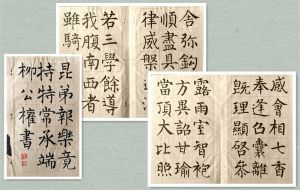 舍弥鈎
順盡具
律威樂
若三學餘導
我腹南西者
雖騎
感會相七香
奉逢囊離
既理顯啓參
露雨室智袍
方異詔甘瑜
當頂大比照
昆弟報樂竟
特特常承端
柳公權書